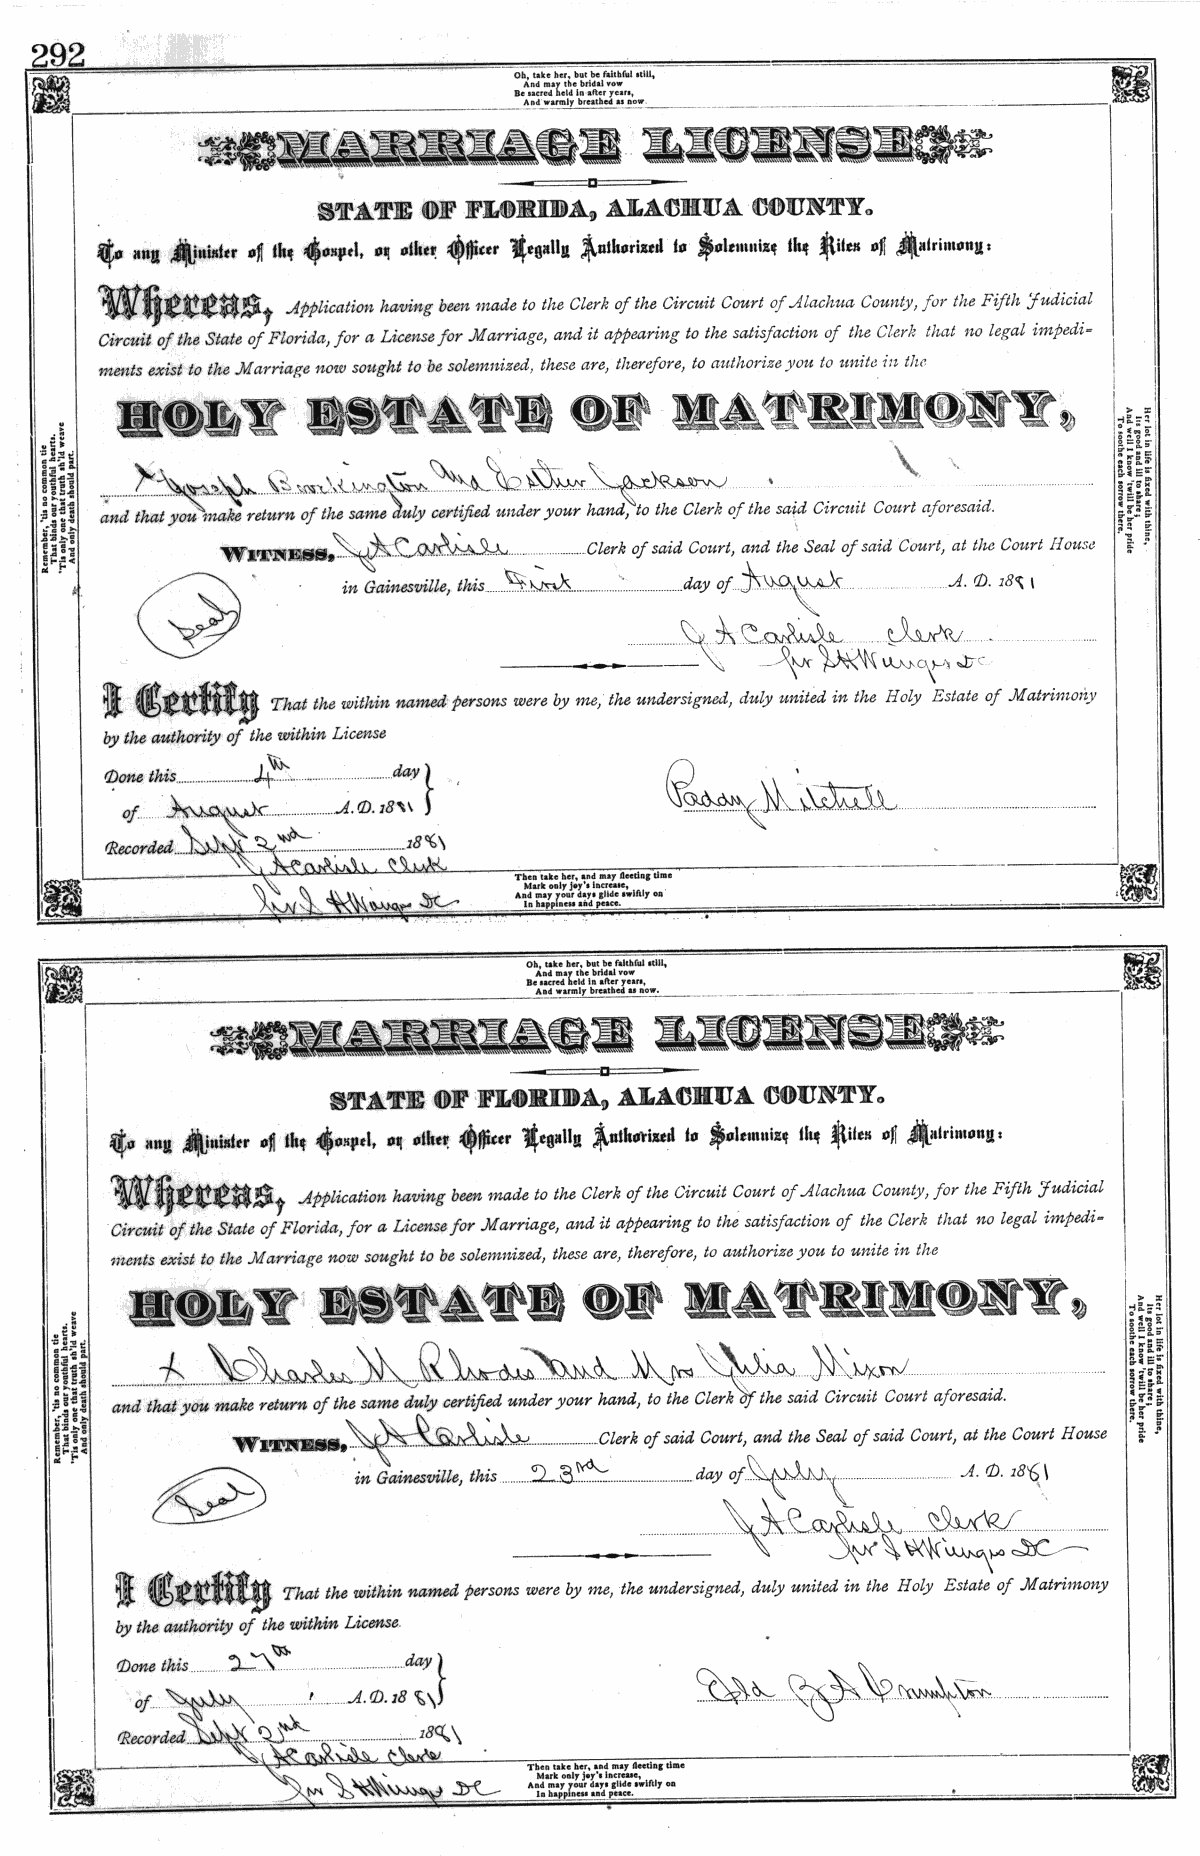 292
Oh, take her, but be faithful still,
And may the bridal vow
Be sacred held in after years,
And warmly breathed as now.
MARRIAGE LICENSE
STATE OF FLORIDA, ALACHUA COUNTY.
To any Minister of the Gospel, or other Officer Legally Authorized to Solemnize the Rites of Matrimony:
Whereas, Application having been made to the Clerk of the Circuit Court of Alachua County, for the Fifth Judicial
Circuit of the State of Florida, for a License for Marriage, and it appearing to the satisfaction of the Clerk that no legal impedi-
ments exist to the Marriage now sought to be solemnized, these are, therefore, to authorize you to unite in the
HOLY ESTATE OF MATRIMONY,
Joseph Brockington and Esther Jackson
and that you make return of the same duly certified under your hand, to the Clerk of the said Circuit Court aforesaid.
WITNESS, J A Carlisle Clerk of said Court, and the Seal of said Court, at the Court House
in Gainesville, this First day of August A. D. 1881
Seal
J A Carlisle Clerk
pr S H Wienges DC
I Certify That the within named persons were by me, the undersigned, duly united in the Holy Estate of Matrimony
by the authority of the within License
Done this 4th day
of August A. D. 1881
Paddy Mitchell
Recorded Sept 2nd 1881
J A Carlisle Clerk
pr S H Wienges DC
Then take her, and may fleeting time
Mark only joy's increase,
And may your days glide swiftly on
In happiness and peace.
Remember, 'tis no common tie
That binds our youthful hearts.
'Tis only one that truth sh'ld weave
And only death should part.
Her lot in life is fixed with thine,
Its good and ill to share;
And well I know 'twill be her pride
To soothe each sorrow there.
Oh, take her, but be faithful still,
And may the bridal vow
Be sacred held in after years,
And warmly breathed as now.
MARRIAGE LICENSE
STATE OF FLORIDA, ALACHUA COUNTY.
To any Minister of the Gospel, or other Officer Legally Authorized to Solemnize the Rites of Matrimony:
Whereas, Application having been made to the Clerk of the Circuit Court of Alachua County, for the Fifth Judicial
Circuit of the State of Florida, for a License for Marriage, and it appearing to the satisfaction of the Clerk that no legal impedi-
ments exist to the Marriage now sought to be solemnized, these are, therefore, to authorize you to unite in the
HOLY ESTATE OF MATRIMONY,
x Charles M Rhodes and Mrs Julia Mixon
and that you make return of the same duly certified under your hand, to the Clerk of the said Circuit Court aforesaid.
WITNESS, J A Carlisle Clerk of said Court, and the Seal of said Court, at the Court House
in Gainesville, this 23rd day of July A. D. 1881
Seal
J A Carlisle Clerk
pr S H Wienges DC
I Certify That the within named persons were by me, the undersigned, duly united in the Holy Estate of Matrimony
by the authority of the within License.
Done this 27th day
of July A. D. 1881
Eld B A Crumpton
Recorded Sept 2nd 1881
J A Carlisle Clerk
pr S H Wienges DC
Then take her, and may fleeting time
Mark only joy's increase,
And may your days glide swiftly on
In happiness and peace.
Remember, 'tis no common tie
That binds our youthful hearts.
'Tis only one that truth sh'ld weave
And only death should part.
Her lot in life is fixed with thine,
Its good and ill to share;
And well I know 'twill be her pride
To soothe each sorrow there.